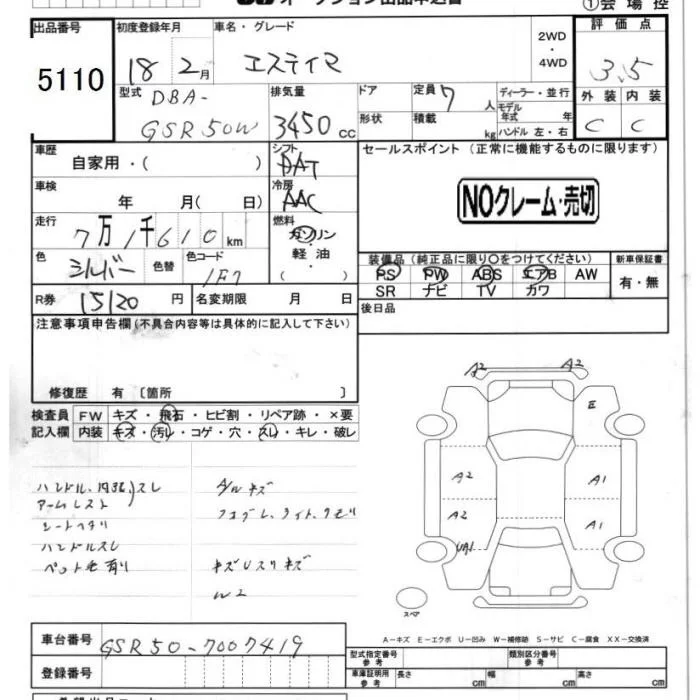 オークション出品申込書
①会場控
出品番号 初度登録年月 車名・グレード 評価点
5110 18 2月 エスティマ 2WD・4WD 3.5
型式 DBA-GSR50W 排気量 3450cc ドア 定員 7人 ディーラー・並行
形状 積載 kg モデル年式 年 ハンドル 左・右
外装 内装
C C
車歴 自家用・( ) シフト DAT セールスポイント(正常に機能するものに限ります)
車検 年 月( 日) 冷房 AAC
NOクレーム・売切
走行 7万1千610km 燃料 ガソリン・軽油・( )
色 シルバー 色替 色コード 1F7
装備品(純正品に限り○をつけてください) 新車保証書
PS PW ABS エアB AW 有・無
SR ナビ TV カワ
R券 15120円 名変期限 月 日
後日品
注意事項申告欄(不具合内容等は具体的に記入して下さい)
修復歴 有〔箇所 〕
検査員 FW キズ・飛石・ヒビ割・リペア跡・×要
記入欄 内装 キズ・汚レ・コゲ・穴・スレ・キレ・破レ
アームレスト
シートヘタリ
ハンドルスレ
ペット毛有り
アルキズ
W2
A2 A2
E
A2 A1
A2 A1
UA1
スペア
A-キズ E-エクボ U-凹み W-補修跡 S-サビ C-腐食 XX-交換済
車台番号 GSR50-7007419
型式指定番号 参考 類別区分番号 参考
登録番号
車庫証明用 参考 長さ cm 幅 cm 高さ cm